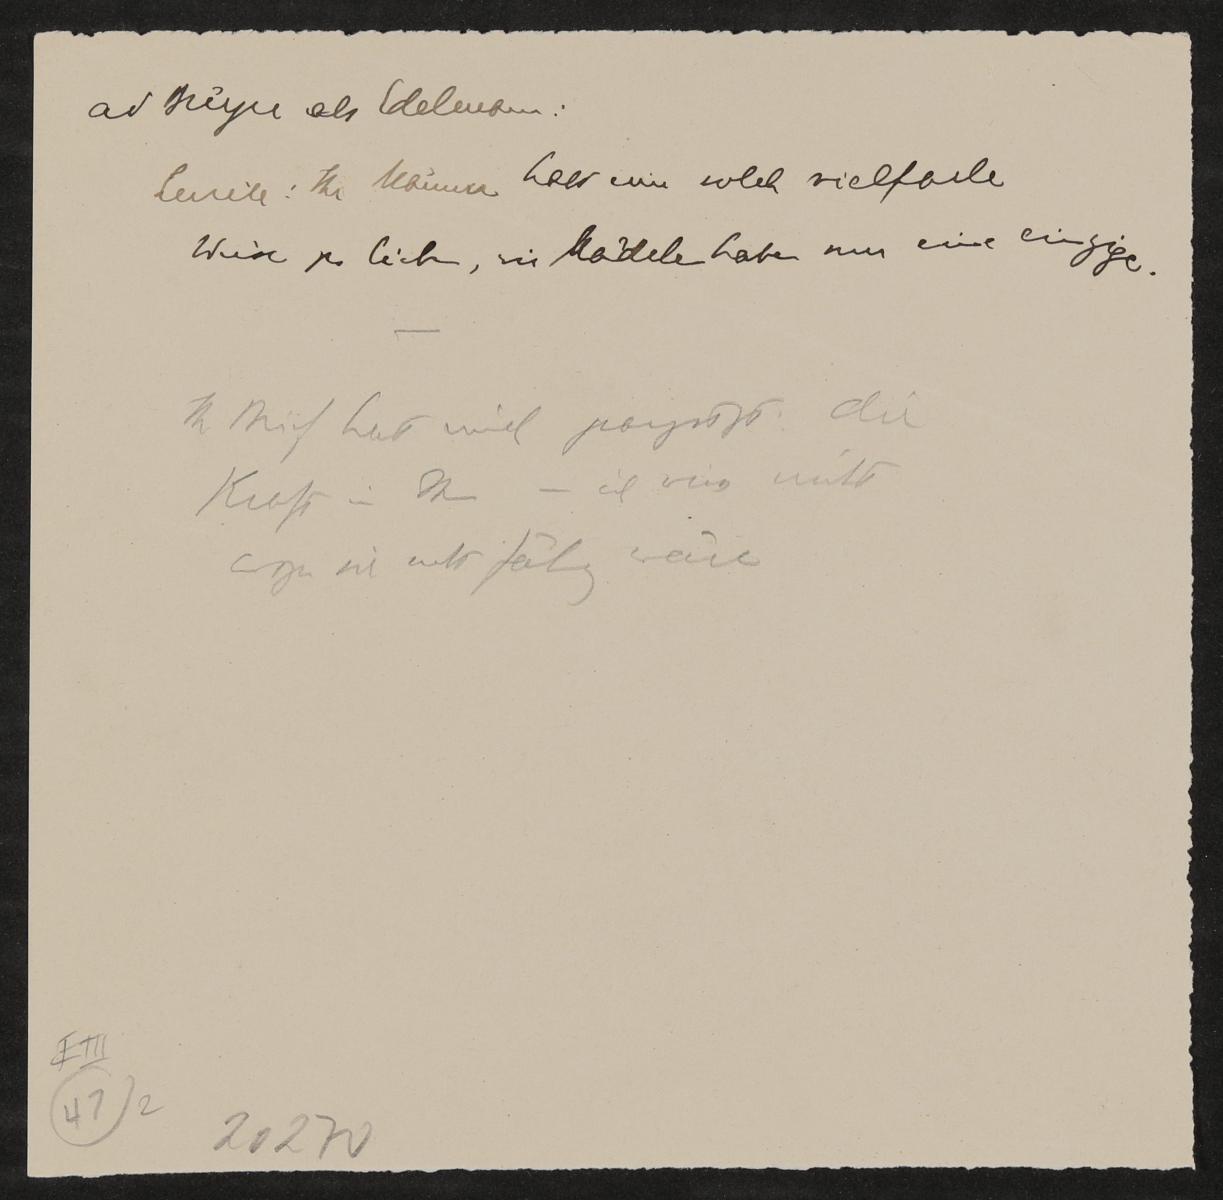 ad Bürger als Edelmann:
Lucile: Ihr Männer habt eine solch vielfache
Weise zu lieben, wir Mädeln haben nur eine einzige.
—
Ihr Brief hat mich geängstigt. Die
Kraft in Ihr — ich weiss nicht
wozu sie nicht fähig wäre
E III
47/2
20270